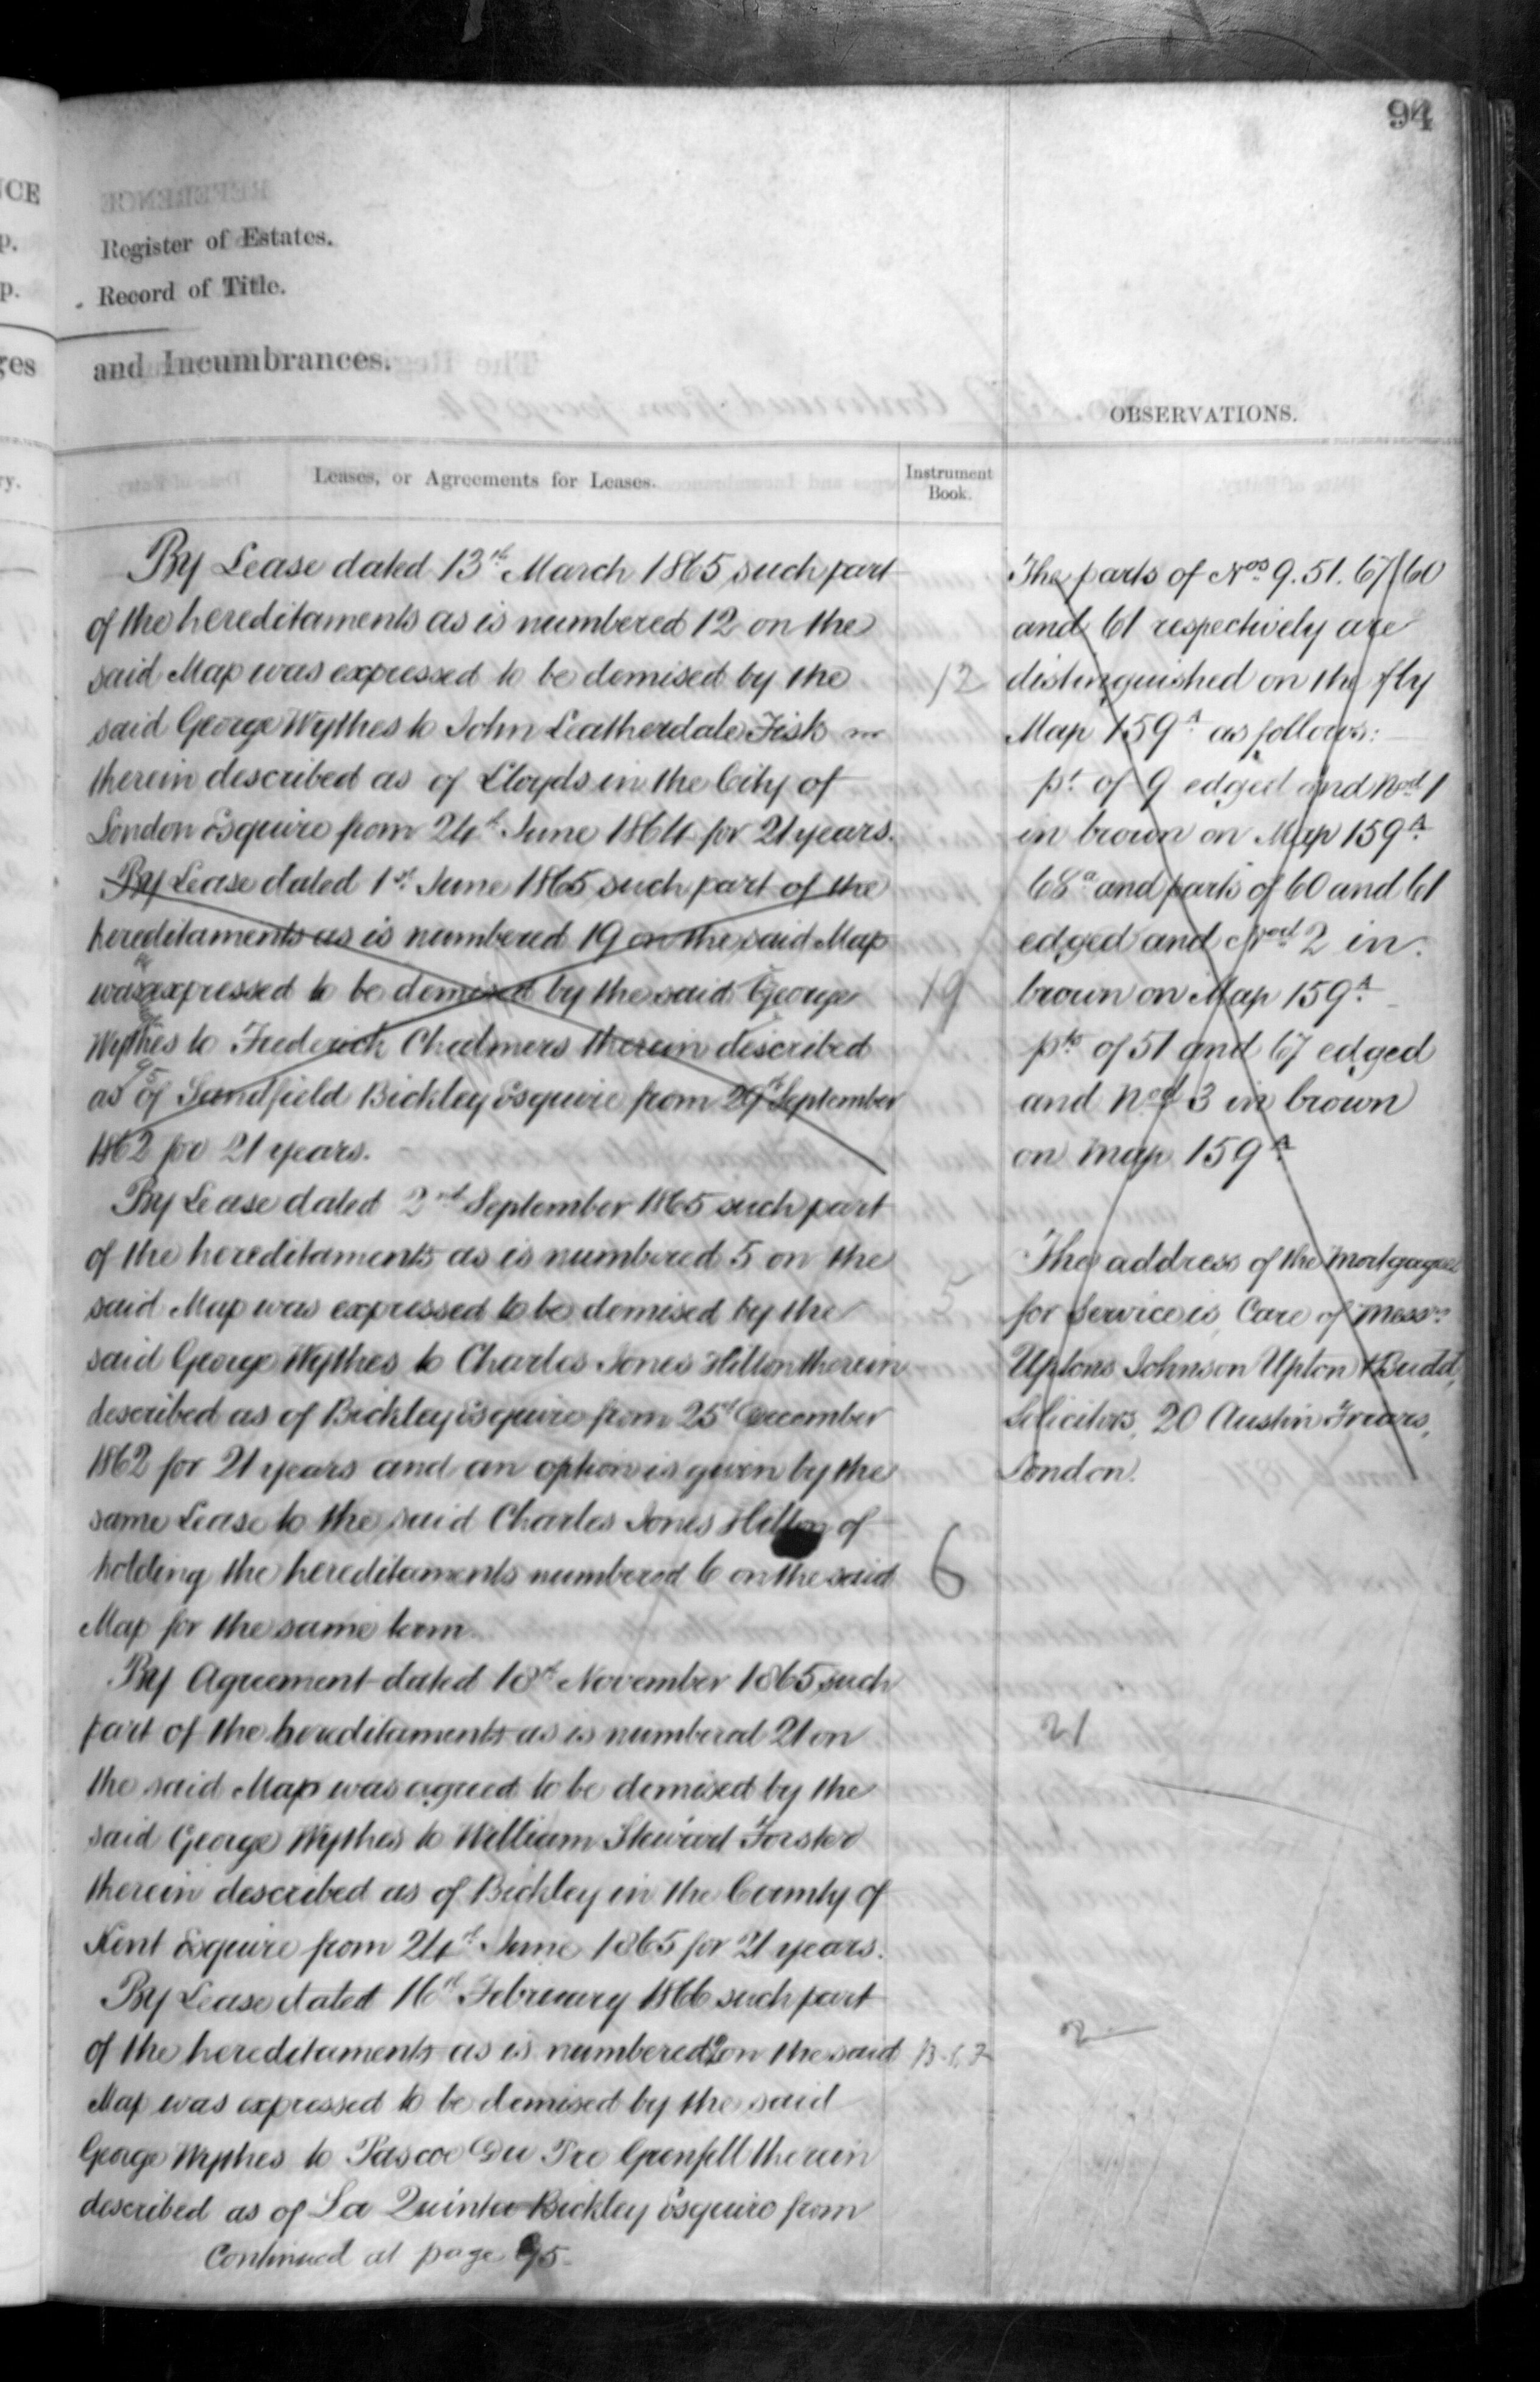 94
Register of Estates.
Record of Title.
and Incumbrances.
OBSERVATIONS.
Leases, or Agreements for Leases.
Instrument
Book.
By Lease dated 13th March 1865 such part
of the hereditaments as is numbered 12 on the
said Map was expressed to be demised by the
said George Wythes to John Leatherdale Fisk
therein described as of Lloyds in the City of
London Esquire from 24th June 1864 for 21 years.
By Lease dated 1st June 1865 such part of the
hereditaments as is numbered 19 on the said Map
was expressed to be demised by the said George
Wythes to Frederick Chalmers therein described
as of Sandfield Bickley Esquire from 29th September
1862 for 21 years.
By Lease dated 2nd September 1865 such part
of the hereditaments as is numbered 5 on the
said Map was expressed to be demised by the
said George Wythes to Charles Jones Hilton therein
described as of Bickley Esquire from 25th December
1862 for 21 years and an option is given by the
same Lease to the said Charles Jones Hilton of
holding the hereditaments numbered 6 on the said
Map for the same term.
By Agreement dated 18th November 1865 such
part of the hereditaments as is numbered 21 on
the said Map was agreed to be demised by the
said George Wythes to William Steward Forster
therein described as of Bickley in the County of
Kent Esquire from 24th June 1865 for 21 years.
By Lease dated 16th February 1866 such part
of the hereditaments as is numbered 2 on the said
Map was expressed to be demised by the said
George Wythes to Pascoe Du Pre Grenfell therein
described as of La Quinta Bickley Esquire from
Continued at page 95
12
19
5
6
The parts of Nos 9. 51. 67 60
and 61 respectively are
distinguished on the fly
Map 159A as follows:
pt of 9 edged and Nod 1
in brown on Map 159A
68a and parts of 60 and 61
edged and Nod 2 in
brown on Map 159A
pts of 51 and 67 edged
and Nod 3 in brown
on Map 159A
The address of the Mortgagees
for service is Care of Messrs
Uptons Johnson Upton & Budd,
Solicitors, 20 Austin Friars,
London.
21
2